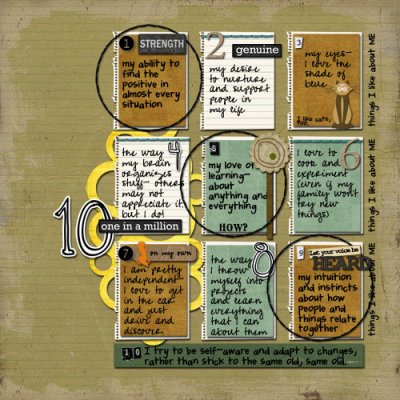 1 STRENGTH
my ability to
find the
positive in
almost every
situation
2 genuine
my desire
to nurture
and support
people in
my life
3
my eyes-
i love the
shade of
blue
I like cats,
too.
things I like about ME
4
the way
my brain
organizes
stuff- others
may not
appreciate it
but I do!
one in a million
my love of
learning-
about
anything and
everything
HOW?
6
i love to
cook and
experiment
(even if my
family won't
try new
things)
things I like about ME
10
7 on my own
i am pretty
independent-
i love to get
in the car
and just
drive and
discover
8
the way
I throw
myself into
projects
and learn
everything
that I can
about them
9
Let your voice be
HEARD
my intuition
and instincts
about how
people and
things relate
together
things I like about ME
10 I try to be self-aware and adapt to changes,
rather than stick to the same old, same old.